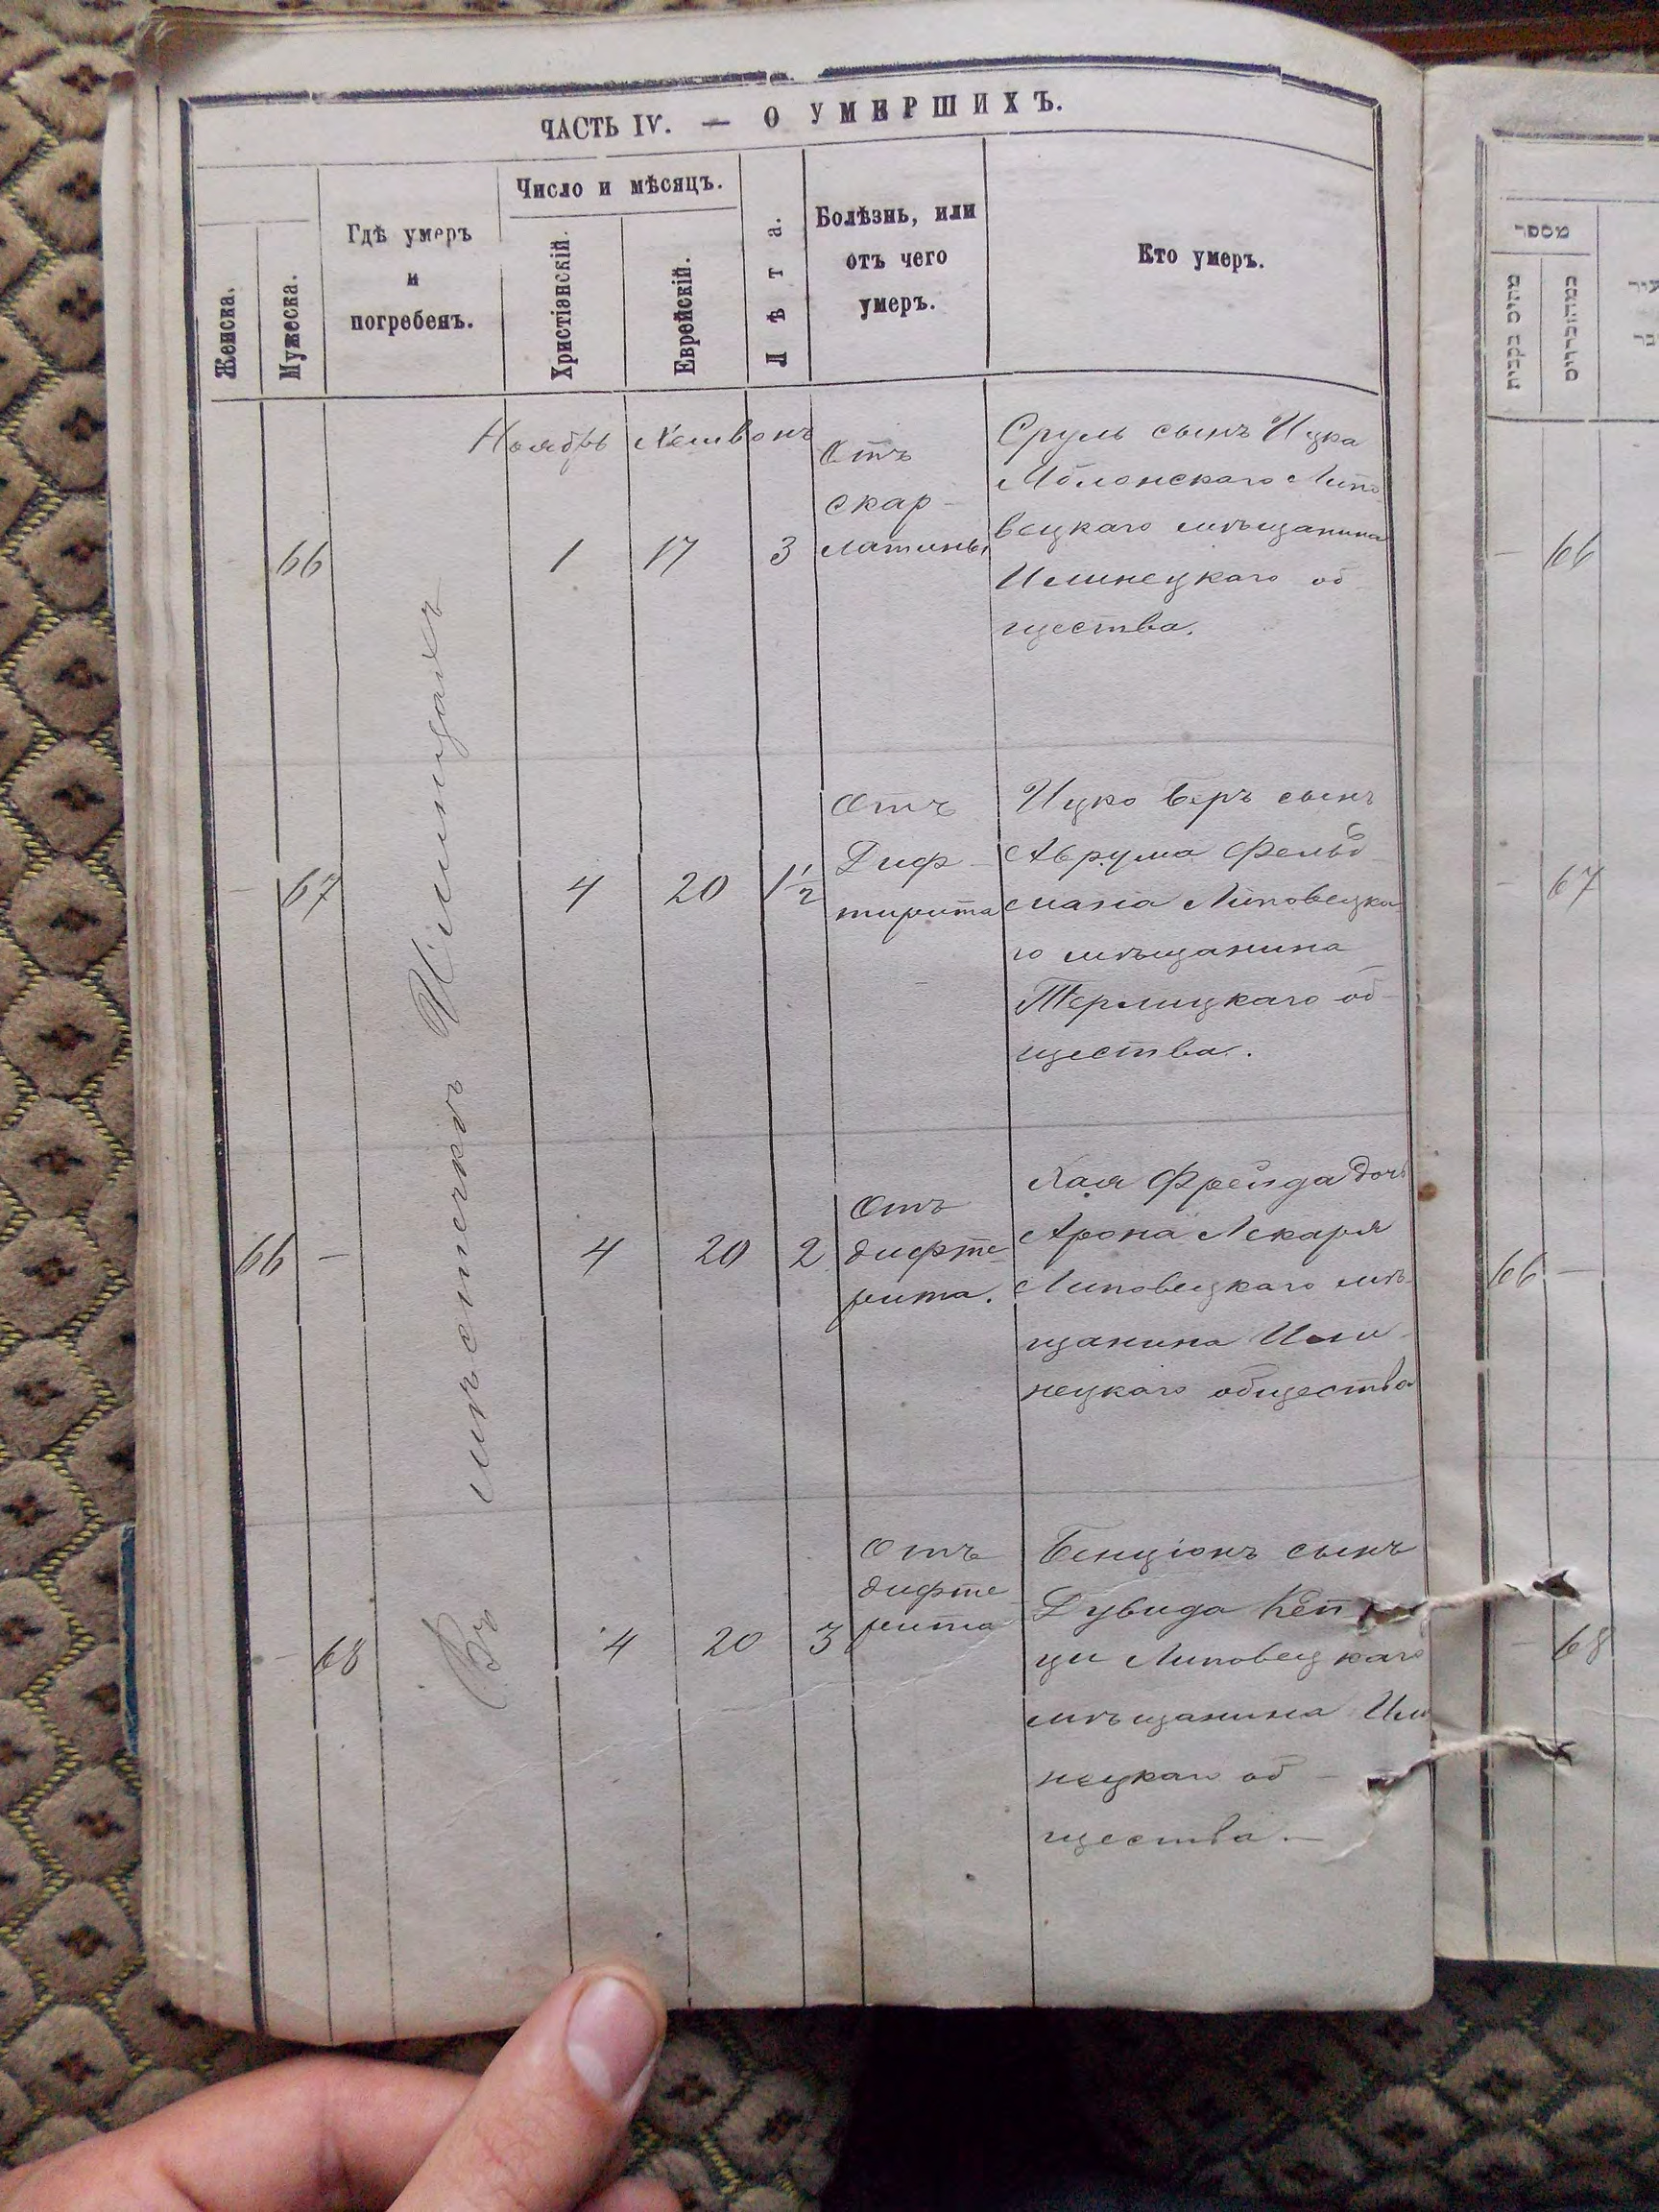 ЧАСТЬ IV. — О УМЕРШИХЪ.
Женска.
Мужеска.
Гдѣ умеръ
и
погребенъ.
Число и мѣсяцъ.
Христіанскій.
Еврейскій.
Лѣта.
Болѣзнь, или
отъ чего
умеръ.
Кто умеръ.
Ноябрь Хешвонъ
Въ мѣстечкѣ Илинцахъ
66 1 17 3
Отъ
скар-
латины
Сруль сынъ Ицка
Яблонскаго Липо
вецкаго мѣщанина
Илинецкаго об
щества.
— 67 4 20 1½
Отъ
Диф-
тирита
Ицко Беръ сынъ
Аврума Фельд
мана Липовецка
го мѣщанина
Терлицкаго об-
щества.
66 — 4 20 2
Отъ
дифте
рита.
Хая Фрейда дочь
Арона
Липовецкаго мѣ-
щанина Или
нецкаго общества
— 68 4 20 3
Отъ
дифте
рита
Бенціонъ сынъ
Дувида
ци Липовецкаго
мѣщанина Или
нецкаго об —
щества.—
מספר
מהנקבות
מהזכרים
— 66
— 67
66 —
— 68